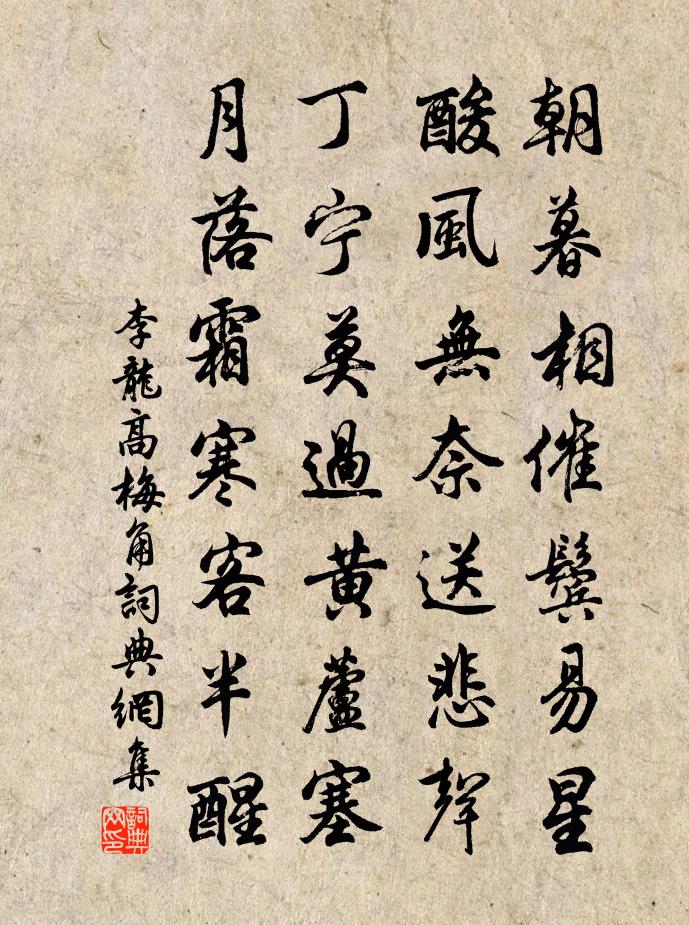 朝暮相催鬢易星
酸風無奈送悲聲
丁宁莫過黄蘆塞
月落霜寒客半醒
李龍高梅角詞典網集
詞典网印